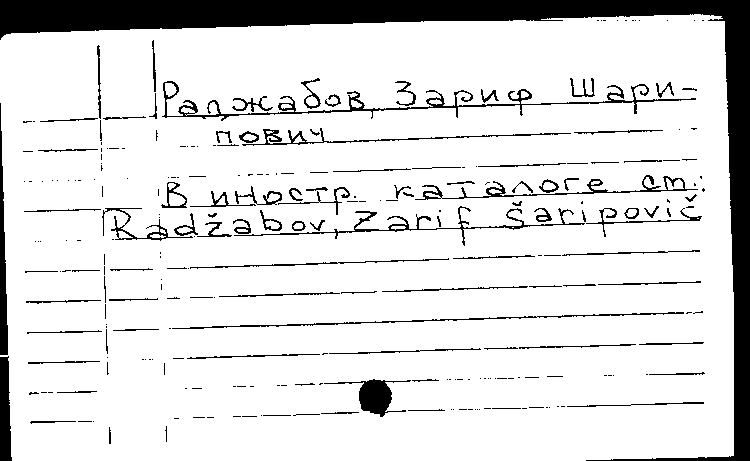 Раджабов, Зариф Шари-
пович
В иностр. каталоге см.:
Radžabov, Zarif Šaripovič